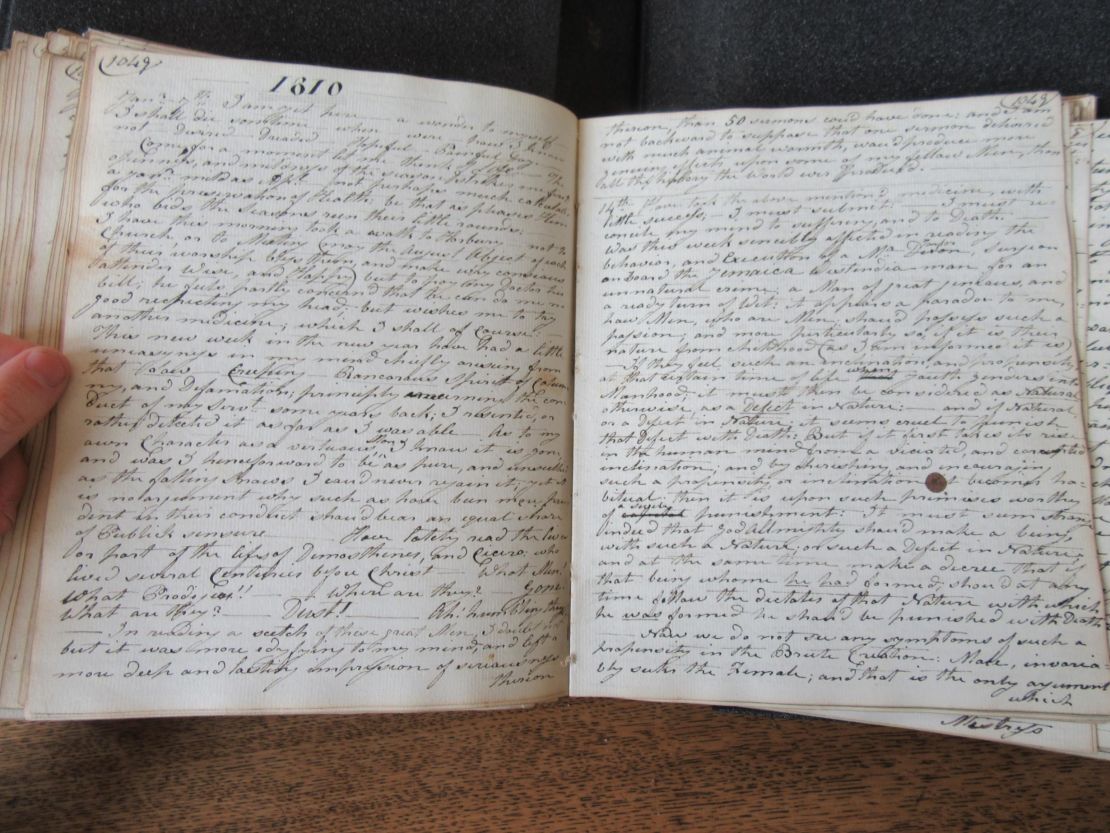 1048
1810
Jany. 7th. I am yet here — a wonder to myself
I shall die sometime
not — when were ye
Come for a moment let me think
openness, and mildness of the season; hitherto
a year, milder not perhaps much calculated
for the preservation of Health; be that as pleases Him
who bids the Seasons run their little rounds;
I have this morning took a walk to Horbury — not to
Church, or to Meeting (may the August Object of each
of their worship bless them and make way comers
better, Wise, and Happy) but to pay my Doctor his
bill; he fully passed command that he can do me no
good respecting my head; but wishes me to try
another medicine; which I shall of Course.
This new week in the new year have had a little
uneasyness in my mind chiefly arising from
that Base — Creeping — Rancorous Spirit of Calum
ny, and Defamation; principly concerning the con
duct of my Servt. some years back; I resented, or
rather detected it as far as I was able — As to my
own Character as a virtuous Man, I know it is gone,
and was I henceforward to be as pure, and unsullied
as the falling Snows I could never regain it; yet it
is no argument why such as have been more pru
dent in their conduct should bear an equal share
of Publick censure — Have lately read the lives
or part of the lifes of Demosthenes, and Cicero; who
lived several Centuries before Christ — What Men!
What Prodigies!! — Where are they? — Gone.
What are they? — Dust! — Oh! humbling thought
— In reading a scetch of these great Men, I doubt not
but it was more edifying to my mind, and left a
more deep and lasting impression of seriousness
thereon
1049
thereon, than 50 sermons could have done; and I am
not backward to suppose that one sermon delivered
with much animal warmth, would produce more
genuine effects upon some of my fellow Men, than
all the history the World ever produced.
14th. Have took the above mention'd medicine with
little success; — I must submit; — I must re-
concile my mind to suffering and to Death.
Was this week sincerely affected in reading the
behavior, and Execution of a Mr. Taylor, Surgeon
on Board the Jamaica Westindia man for an
unnatural crime; a Man of great genious, and
a ready turn of Wit: it appears a paradox to me,
how Men, who are Men, shoud possess such a
passion; and more particularly so, if it is their
nature from childhood (as I am informed it is)
— If they feel such an inclination, and propensity,
at that certain time of life when youth genders into
Manhood; it must then be considered as Natural
otherwise, as a Defect in Nature: — and if Natural,
or a defect in Nature; it seems cruel to punish
that defect with Death: But if it first takes its rise
in the human mind from a viciated, and corrupted
inclination; and by cherishing, and encouraging
such a propensity, or inclination it becomes ha-
bitual: then it is upon such premises worthy
of a severe capital punishment: It must seem strange
indeed that God Allmighty should make a being,
with such a Nature; or such a Defect in Nature;
and at the same time make a decree that if
that being whome he had formed, should at any
time follow the dictates of that Nature with which
he was formed he should be punished with Death
— Now we do not see any symptoms of such a
propensity in the Brute Creation: Male, invaria
bly seeks the Female; and that is the only argument
which
Mistress